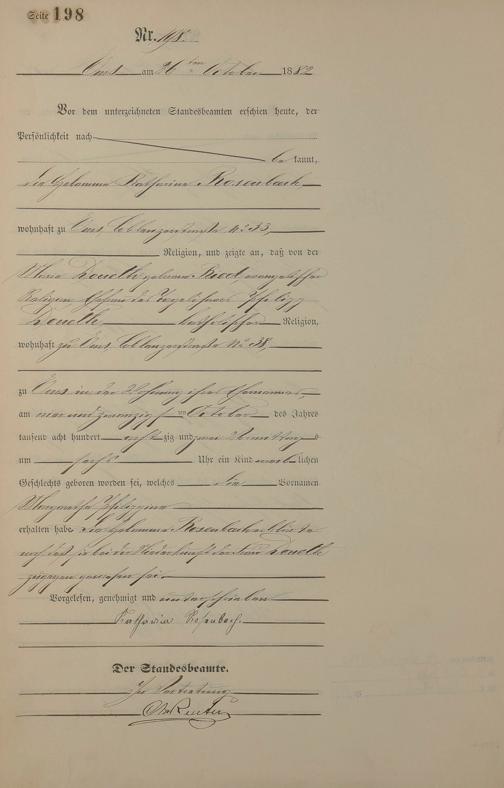 Seite 198
Nr. 198.
Ems am 26ten October 1882
Vor dem unterzeichneten Standesbeamten erschien heute, der
Persönlichkeit nach
be kannt,
die Hebamme Katharina Rosenbach
wohnhaft zu Ems, Coblenzerstraße No 33,
Religion, und zeigte an, daß von der
Maria geborene evangelischer
Religion, Ehefrau des Tagelöhners Philipp
katholischer Religion,
wohnhaft zu Ems, Coblenzerstraße No 38,
zu Ems in der Wohnung ihres Ehemannes,
am ein und zwanzigsten October des Jahres
tausend acht hundert achtzig und zwei Vormittags
um sechs Uhr ein Kind weiblichen
Geschlechts geboren worden sei, welches die Vornamen
Margaretha Philippina
erhalten habe. Die Hebamme Rosenbach erklärte
noch daß sie bei der Niederkunft der
zugegen gewesen sei.
Vorgelesen, genehmigt und unterschrieben
Katharina Rosenbach.
Der Standesbeamte.
In Vertretung